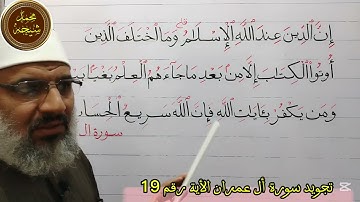 محمد
شيحه
إِنَّ ٱلدِّينَ عِندَ ٱللَّهِ ٱلْإِسْلَٰمُ وَمَا ٱخْتَلَفَ ٱلَّذِينَ
أُوتُوا۟ ٱلْكِتَٰبَ إِلَّا مِنۢ بَعْدِ مَا جَآءَهُمُ ٱلْعِلْمُ بَغْيًۢا
وَمَن يَكْفُرْ بِـَٔايَٰتِ ٱللَّهِ فَإِنَّ ٱللَّهَ سَرِيعُ ٱلْحِسَا
سورة ال
تجويد سورة أل عمران الأية رقم 19